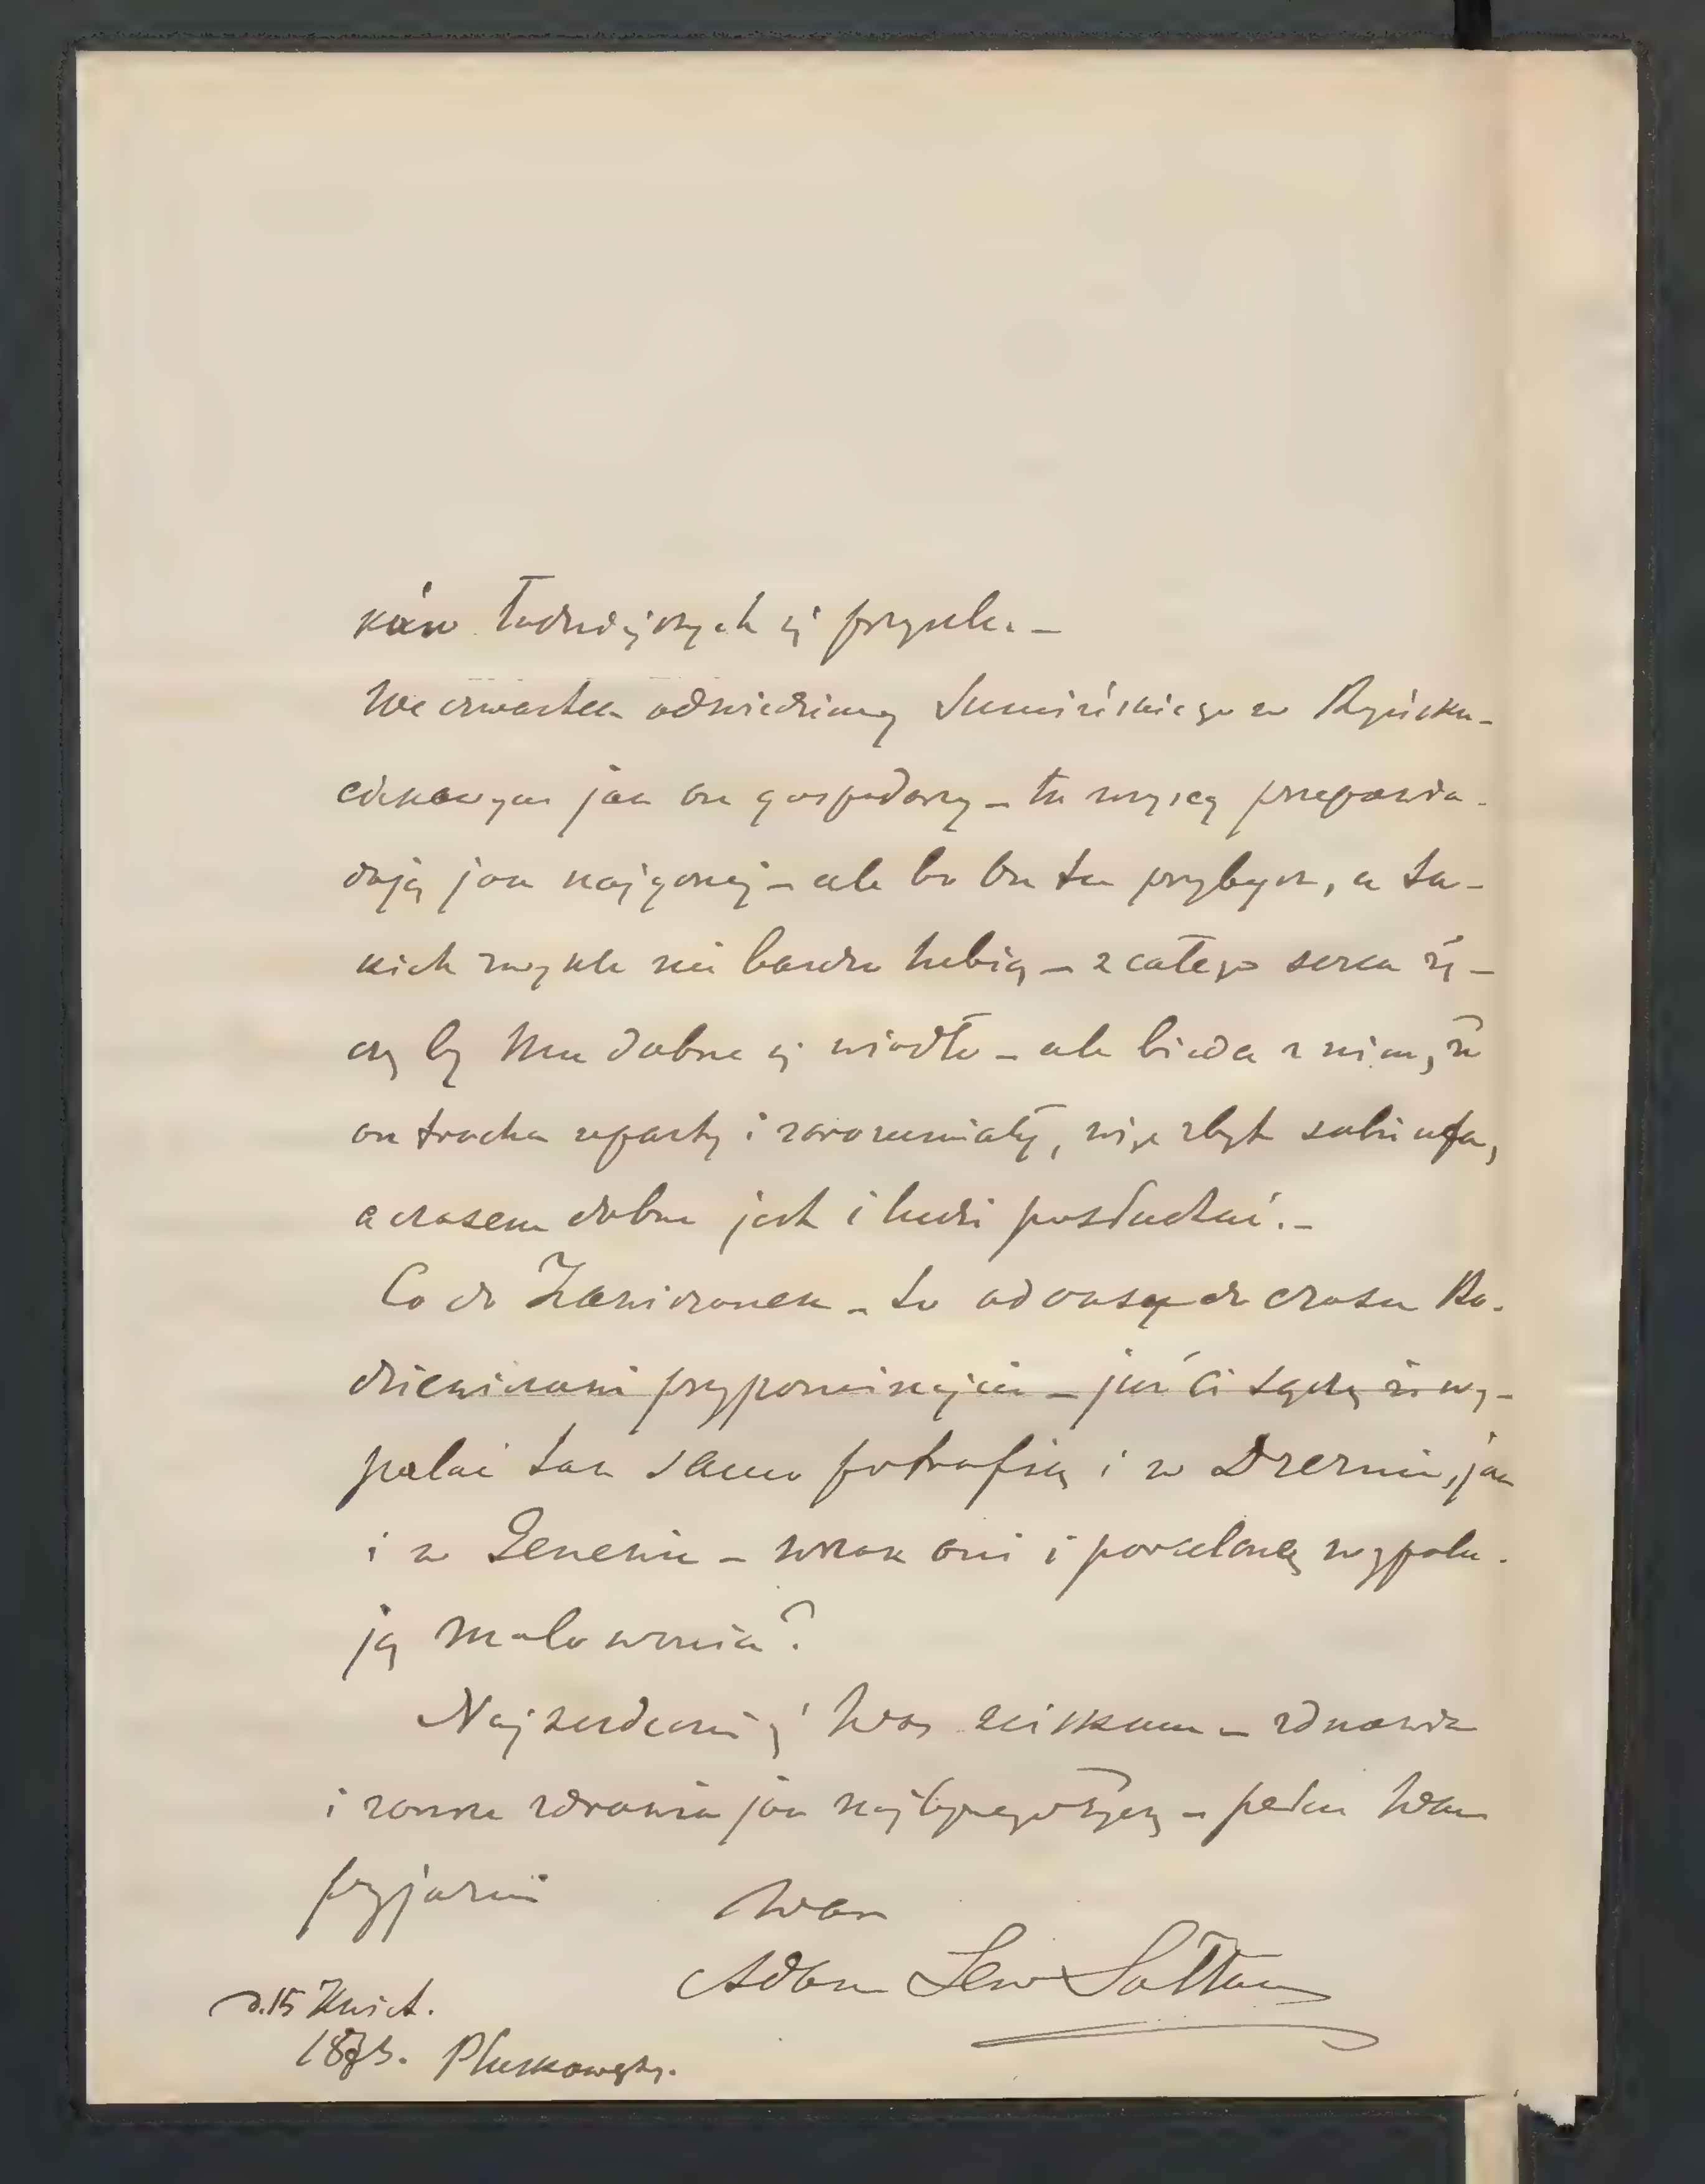 ków łudzących się przysła. –
We czwartek odwiedzimy Sumińskiego w Ryńsku –
ciekawym jak on gospodarzy – tu wszyscy przepowia-
dają jak najgorzej – ale bo on tu przybysz, a ta-
kich zwykle nie bardzo lubią – z całego serca ży-
czę by Mu dobrze się wiodło – ale bieda z nim, że
on trochę uparty i zarozumiały, więc zbyt sobie ufa,
a czasem dobrze jest i ludzi posłuchać. –
Co do – to od czasu do czasu Ra-
dziewiczowi przypominajcie – juści sądzę że wy-
palać tak samo potrafią i w Dreznie, jak
i w Genewie – wszak oni i porcelanę wypala-
ją malowania?
Najserdeczniej Was ściskam – zdrowia
i zawsze zdrowia jak najlepszego życzę – pełen Wam
przyjaźni Wasz
Adam Lew Sołtan
d. 15 Kwiet.
Pluskowęsy.